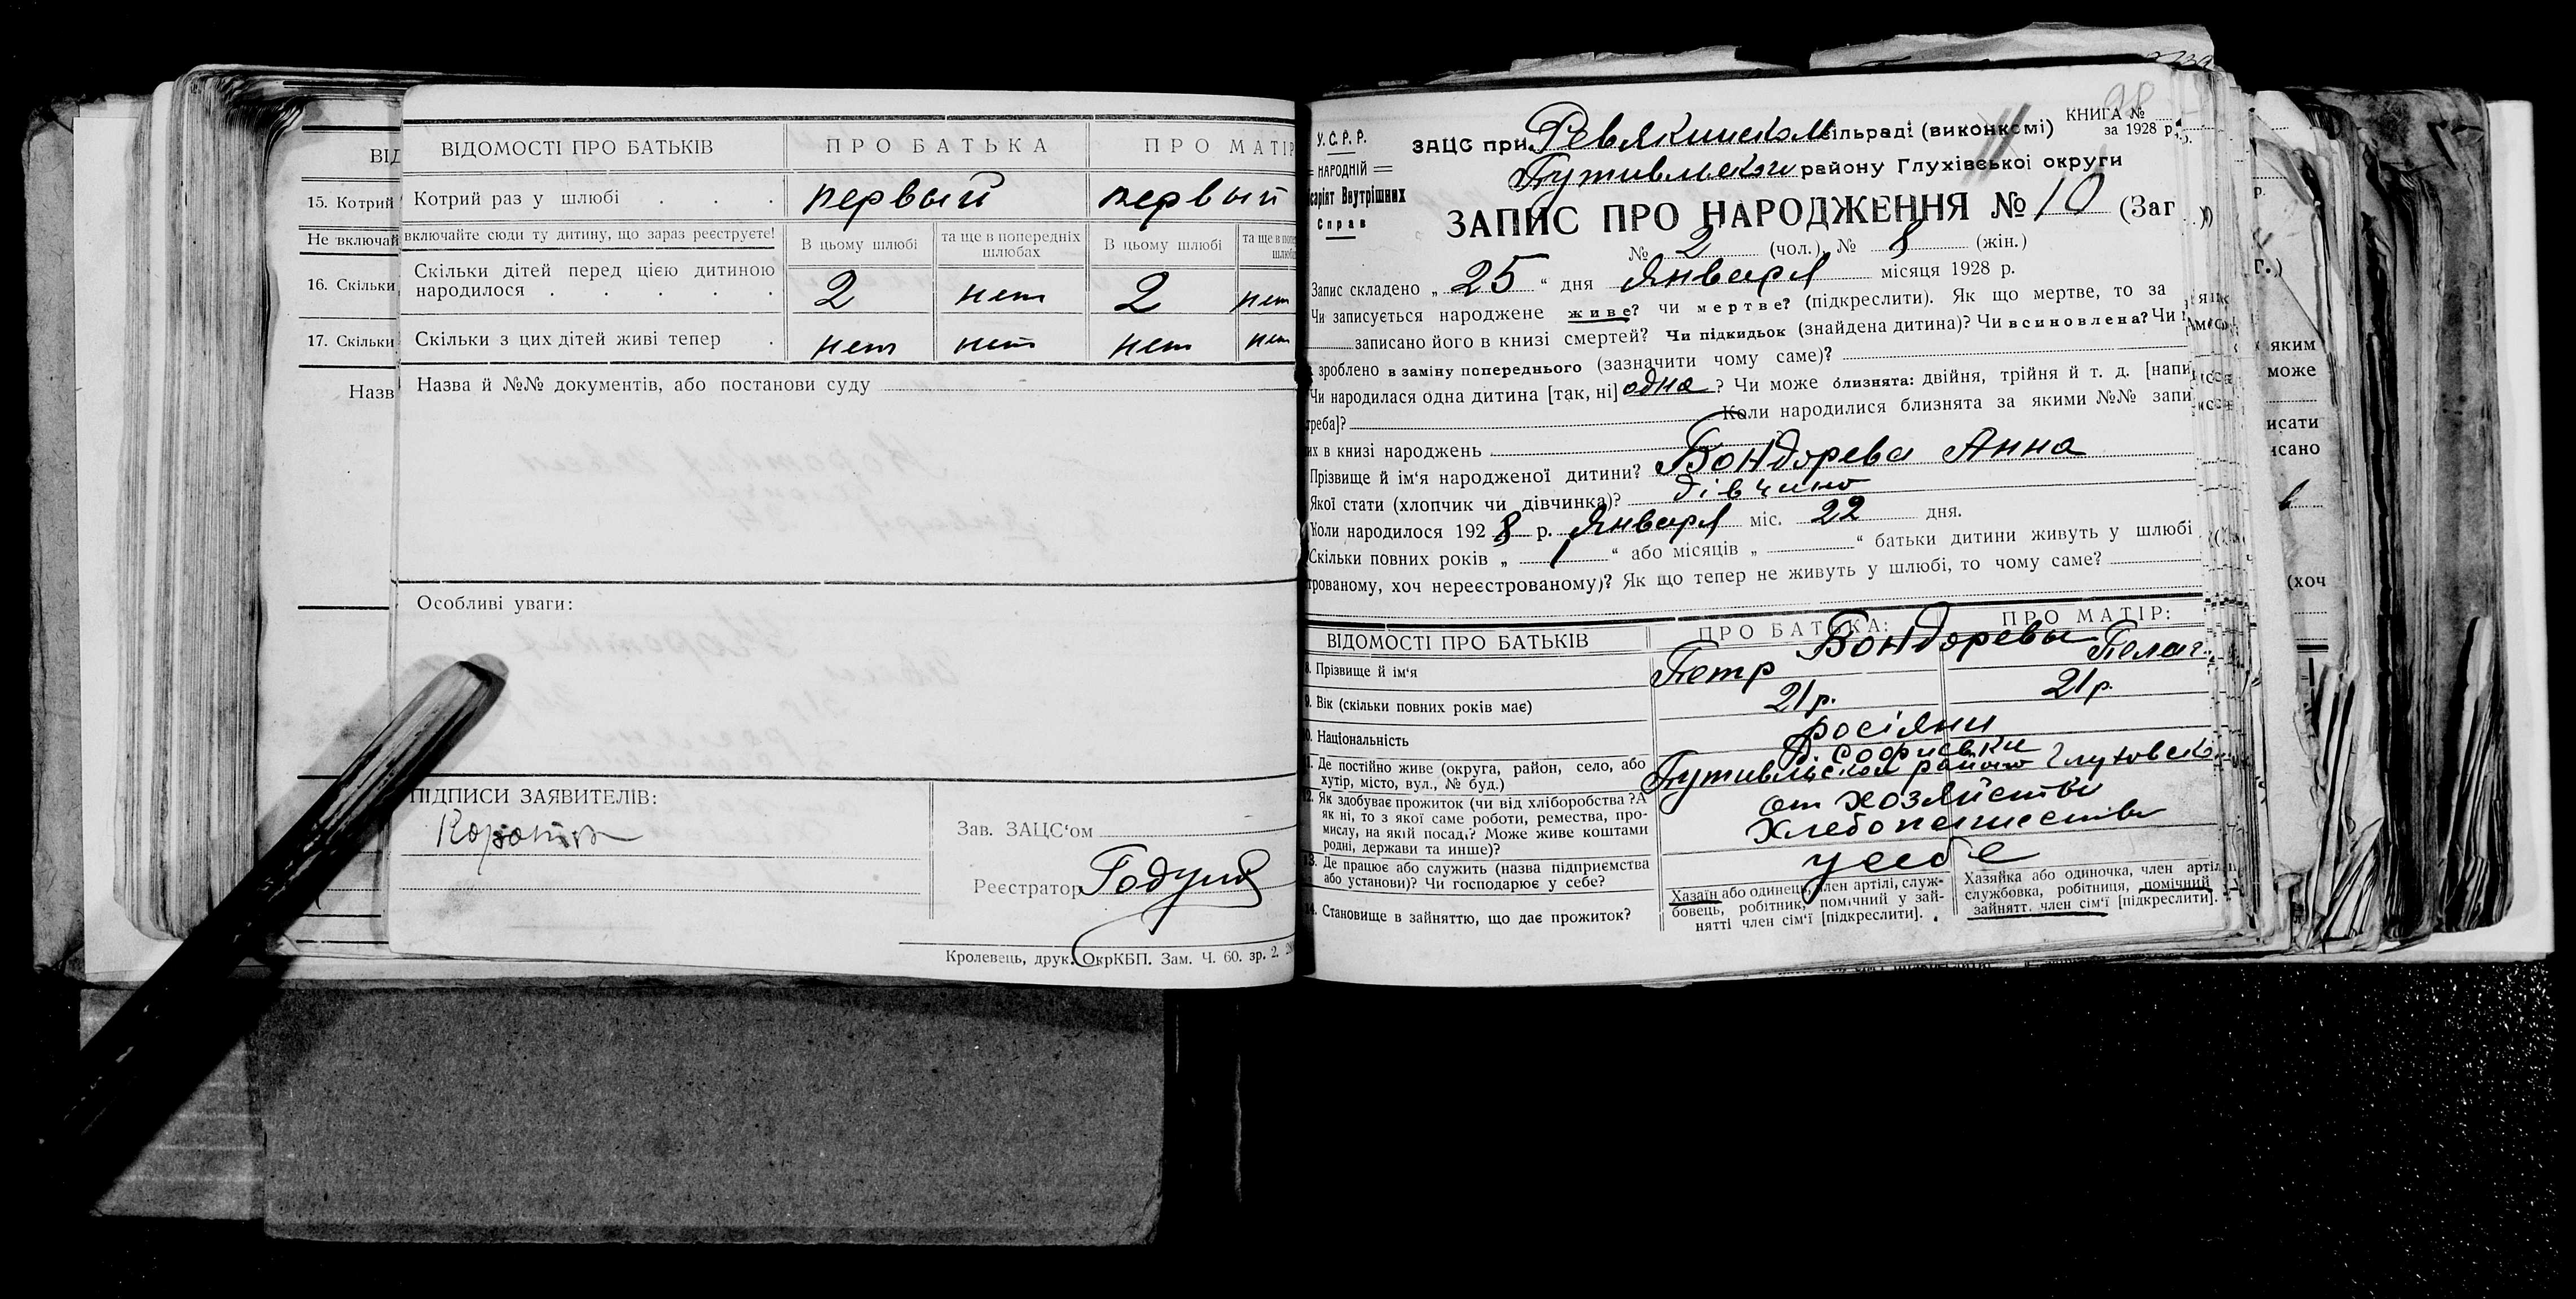 ВІДОМОСТІ ПРО БАТЬКІВ ПРО БАТЬКА ПРО МАТІР
15. Котрий
Котрий раз у шлюбі . . . первый первый
Не включай
включайте сюди ту дитину, що зараз реєструєте! В цьому шлюбі та ще в попередніх шлюбах В цьому шлюбі
16. Скільки
Скільки дітей перед цією дитиною
народилося . . . . . 2 нет 2 нет
17. Скільки
Скільки з цих дітей живі тепер . нет нет нет нет
Назв
Назва й №№ документів, або постанови суду
Особливі уваги:
ПІДПИСИ ЗАЯВИТЕЛІВ:
Зав. ЗАЦС‘ом
Реєстратор
Кролевець, друк. ОкрКБП. Зам. Ч. 60. зр. 2.
КНИГА №
за 1928 р.
У.С.Р.Р.
НАРОДНІЙ
Внутрішних
Справ
ЗАЦС при Ревякинском сільраді (виконкомі)
Путивльского району Глухівської округи
ЗАПИС ПРО НАРОДЖЕННЯ № 10 (Заг.)
№ 2 (чол.), № 8 (жін.)
Запис складено „ 25 “ дня Января місяця 1928 р.
Чи записується народжене живе? чи мертве? (підкреслити). Як що мертве, то за
записано його в книзі смертей? Чи підкидьок (знайдена дитина)? Чи всиновлена? Чи
зроблено в заміну попереднього (зазначити чому саме)?
Чи народилася одна дитина [так, ні] одна ? Чи може близнята: двійня, трійня й т. д. [напи
треба]? Коли народилися близнята за якими №№ запи
их в книзі народжень
Прізвище й ім‘я народженої дитини? Бондорева Анна
Якої стати (хлопчик чи дівчинка)? дівчина
Коли народилося 1928 р. Января міс. 22 дня.
Скільки повних років „ 1 “ або місяців „ “ батьки дитини живуть у шлюбі
трованому, хоч нереєстрованому)? Як що тепер не живуть у шлюбі, то чому саме?
ВІДОМОСТІ ПРО БАТЬКІВ ПРО БАТЬКА: ПРО МАТІР:
Бондоревы
8. Прізвище й ім‘я Петр Пелаг
9. Вік (скільки повних років має) 21 р. 21 р.
10. Національність росіяни
11. Де постійно живе (округа, район, село, або
хутір, місто, вул., № буд.) Путивльском району Глуховско
12. Як здобуває прожиток (чи від хліборобства? А
як ні, то з якої саме роботи, ремества, про-
мислу, на якій посаді? Може живе коштами
родні, держави та инше)?
от хозяйства
Хлебопашества
13. Де працює або служить (назва підприємства
або установи)? Чи господарює у себе?
у себе
14. Становище в зайняттю, що дає прожиток?
Хазаїн або одинець, член артілі, служ-
бовець, робітник, помічний у зай-
нятті член сім‘ї [підкреслити].
Хазяйка або одиночка, член артілі,
службовка, робітниця, помічний
зайнятт. член сім‘ї [підкреслити].
яким
може
исати
исано
(хоч